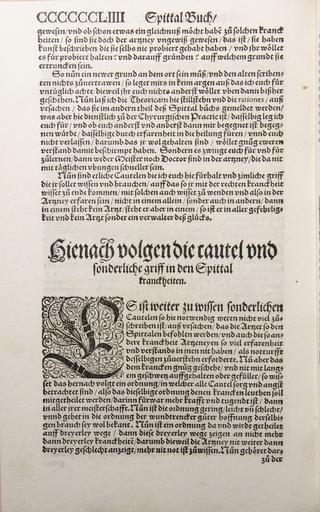 CCCCCCLIIII Spittal Buch/
gewesen/vnd ob schon etwas ein gleichnuß möcht habē zů solchen kranck
heiten/so sind sie doch der artzney vngewiß gewesen/das ist/sie haben
kunst beschriben die sie selbs nie probiert gehabt haben/vnd jhr wöllet
es für probiert halten: vnd darauff gründen: auff welchem grundt sie
ertruncken sein.
So nůn ein newer grund an dem ort sein můß/vnd den alten scriben
ten nichts zůuertrawen/so leget mirs in keim argen auß das ich euch für
vntüglich achte/dieweil jhr euch nichts anderst wöllet vben dann bißher
geschehen. Nůn laß ich die Theorican hie stillstehn/vnd die rationes/auß
vrsachen/das sie im andern theil des Spittal bůchs gemeldet werden/
was aber hie dienstlich zů der Chyrurgischen Practic ist/dasselbig leg ich
euch für/vnd ob euch anderst vnd anderst dann mir begegnet ist/begeg-
nen würde/dasselbige durch erfarenheit in die heilung füren/vnnd euch
nicht verlassen/darumb das jr wol gehalten sind/wöllet gnůg ewrem
verstand damit beschirmpt haben. Sondern es zwinge euch für vnd für
zůlernen/dann weder Meister noch Doctor sind in der artzney/die da nit
mit täglich vbungen schneller sein.
Nůn sind etliche Cautelen die ich euch hie fürhalt vnd zimliche griff
die jr sollet wissen vnd brauchen/auff das so jr mit der rechten kranckheit
wisset zů ende kommen/mit solchen auch wisset zů wenden vnd also in der
Artzney erfaren sein/nicht in einem allein/sonder auch in andern/dann
in einem stehe kein Artzt/stehe er aber in einem/so ist er in aller gefehrlig-
keit vnd kein Artzt sonder ein verwalter deß glücks.
Hienach volgen die cautel vnd
sonderliche griff in den Spittal
kranckheiten.
ES ist weiter zů wissen sonderlichen
Cautelen so hie notwendig weren nicht viel zů-
schreiben ist/auß vrsachen/das die Artzet so den
Spittalen befohlen werden/vnd auch die so an-
dere kranckheit Artzneyen so viel erfarenheit
vnd verstands in men nit haben/als notturfft
desselbigen zůuersten erforderte. Nů aber das
dem krancken gnůg geschehe/vnd nit mit lang-
em geschwetz auffgehalten oder gefüllet/so wis-
set das hernach volgt ein ordnung/in welcher alle Cautel sorg vnd angst
betrachtet sind/also das dieselbige ordnung denen krancken leuthen soll
mitgetheilet werden/darinn für war mehr krafft vnd tugendt ist/dann
in aller jrer meisterschafft. Nůn ist die ordnung gering/leicht vñ schlecht/
vnnd gehet in die ordnung der wundtrencker gůter hoffnung derselbi-
gen brauch sey wol bekant. Nůn ist ein ordnung da vnd wirdt getheilet
auff dreyerley wege/dann diese dreyerley wege zeigen an nicht mehr
dann dreyerley kranckheitē/darumb dieweil die Artzney nit weiter dann
dreyerley geschlecht anzeigt/mehr nit not ist zůwissen. Nůn gehört dar-
zů der